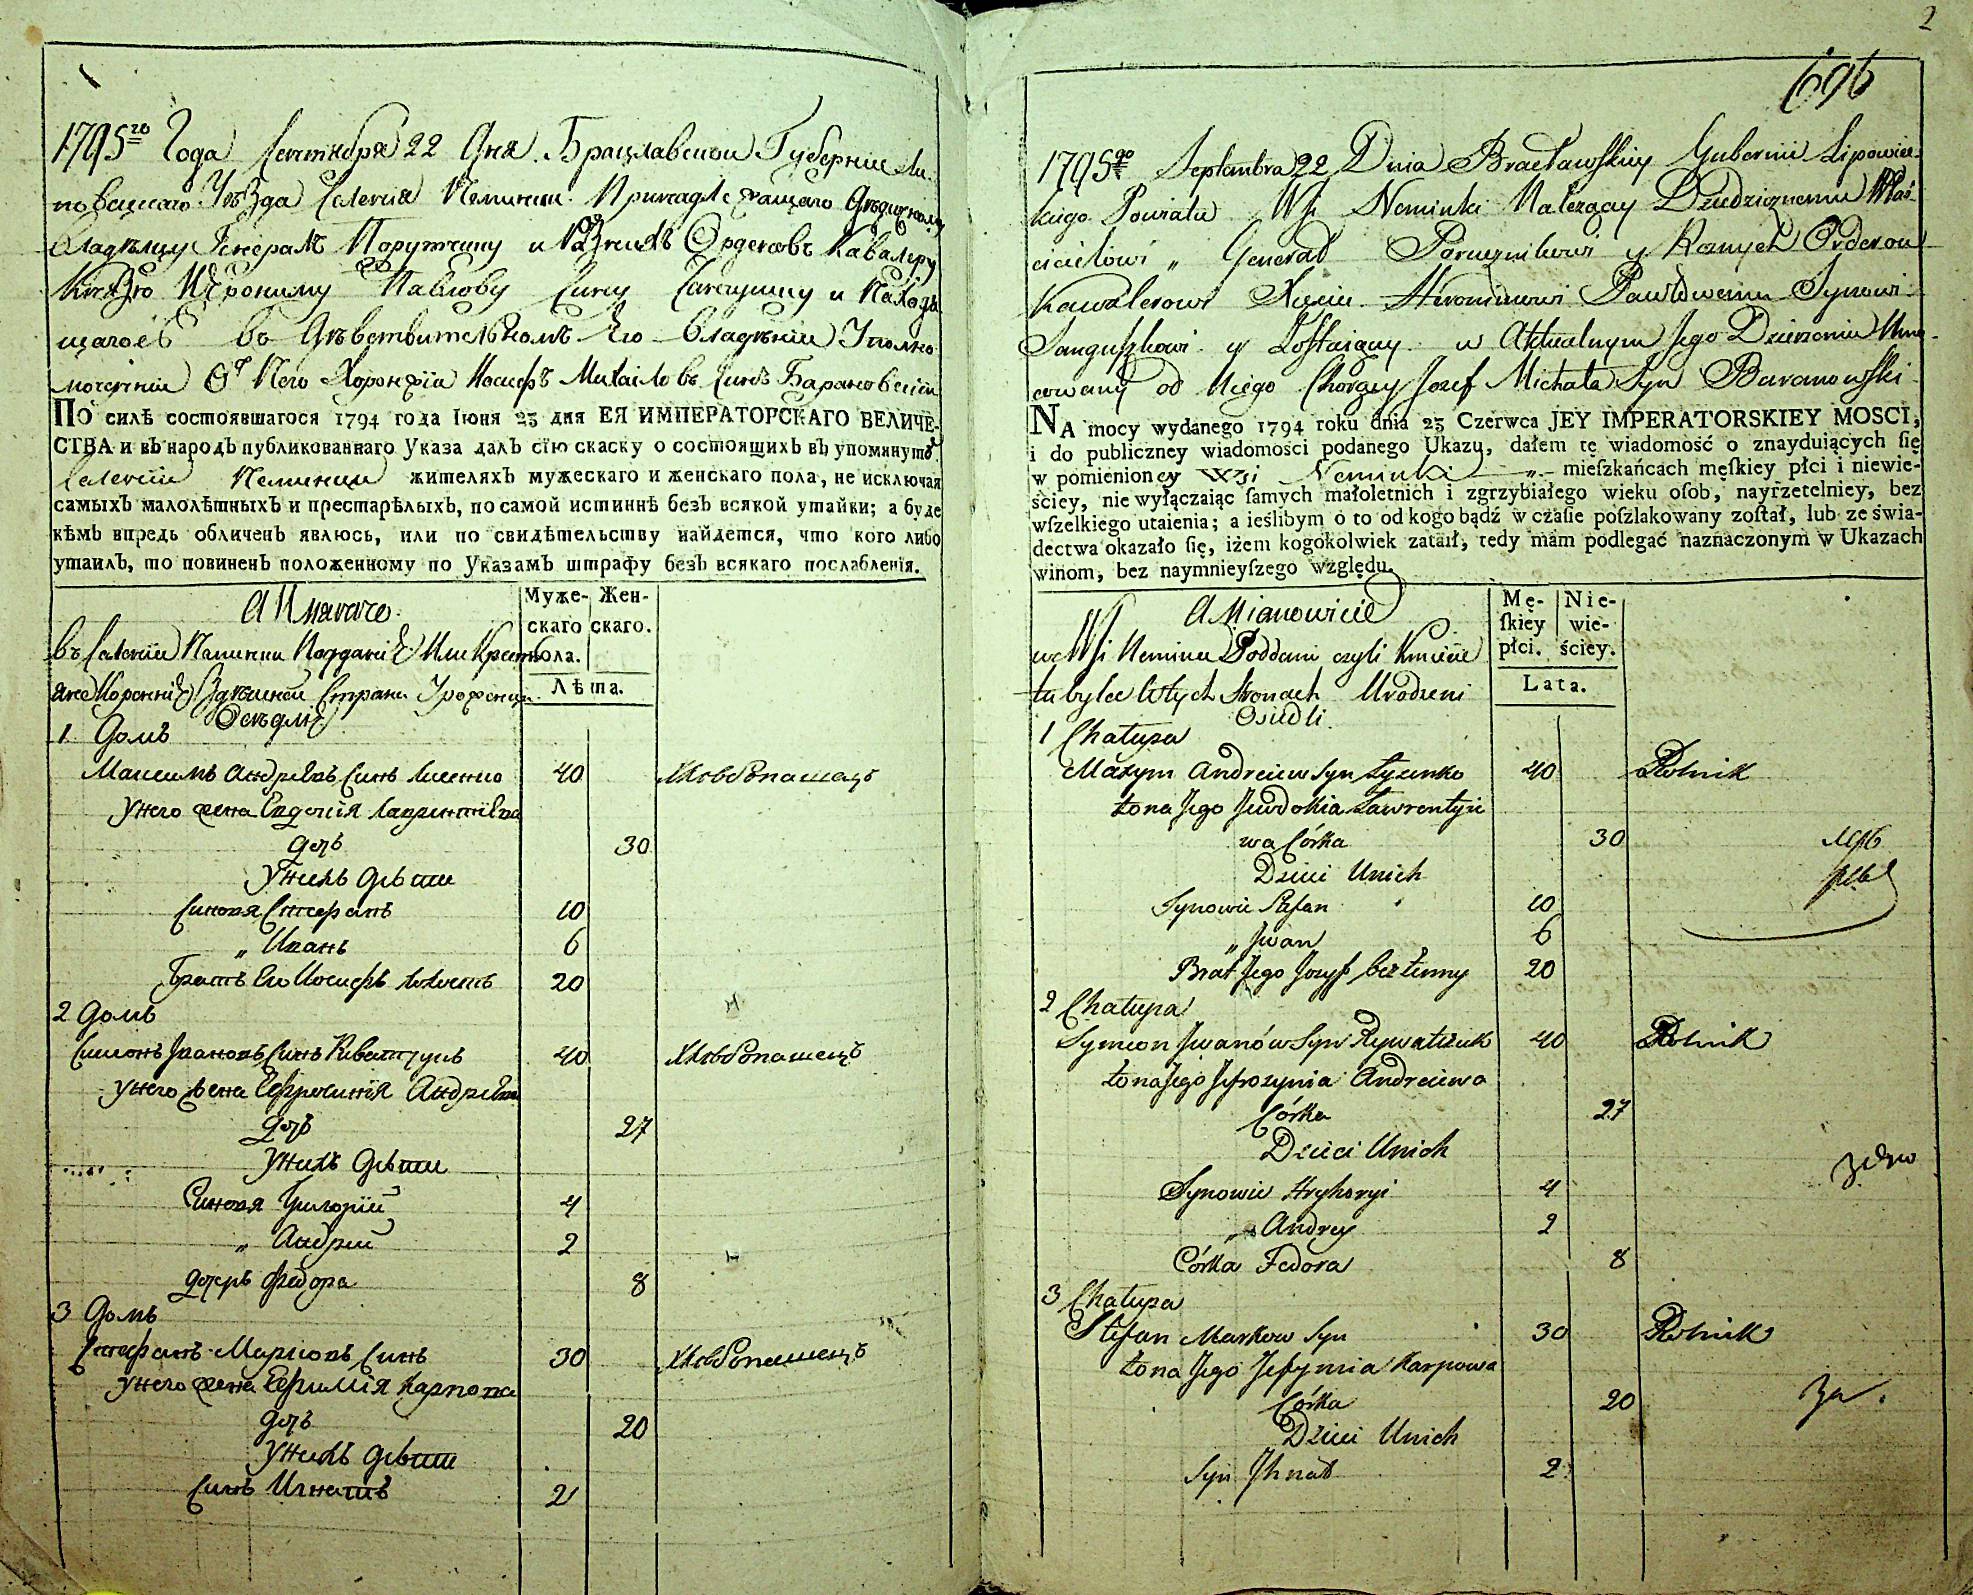 1795го Года Сентября 22 Дня. Брацлавской Губернии Ли-
повецкаго Уѣзда Селения Неминки. Принадлежащаго Дѣдичному
Владѣльцу Генералъ Порутчику и Разныхъ Орденовъ Кавалеру
Князю Иерониму Павлову Сину Сангушку и Находя
щагось въ Дѣйствительномъ Его Владѣнии Уполно
моченний От Него Хоронжiй Иосифъ Михайловъ Синъ Барановский
ПО силѣ состоявшагося 1794 года Iюня 23 дня ЕЯ ИМПЕРАТОРСКАГО ВЕЛИЧЕ-
СТВА и въ народъ публикованнаго Указа далъ сїю скаску о состоящихъ въ упомянуто
Селении Неминки жителяхъ мужескаго и женскаго пола, не исключая
самыхъ малолѣтныхъ и престарѣлыхъ, по самой истиннѣ безъ всякой утайки; а буде
кѣмъ впредь обличенъ явлюсь, или по свидѣтельству найдется, что кого либо
утаилъ, то повиненъ положенному по Указамъ штрафу безъ всякаго послабленїя.
А Имянно
Муже-
скаго
пола.
Жен-
скаго.
Лѣта.
въ Селении Неминки Подданiе Или Крестя
Здѣшной Страни Урожен
Осѣдлiе
1 Домъ
Максимъ Андрѣевъ Синъ Лисенко 40 Хлѣбопашецъ
У него жена Евдокiя Лаврентiева
дочь 30
У нихъ дѣти
Синовя Стефанъ 10
„ Иванъ 6
Братъ Его Иосифъ холостъ 20
2 Домъ
Симонъ Ивановъ Синъ Риватчукъ 40 Хлѣбопашецъ
У него жена Ефросинiя Андрѣева
дочь 27
У нихъ дѣти
Синовя Григорiй 4
„ Андрей 2
дочерь Федора 8
3 Домъ
Стефанъ Марковъ Синъ 30 Хлѣбопашецъ
У него жена Ефимiя Карпова
дочь 20
У нихъ дѣти
Синъ Игнатъ 2
2
696
1795go Septembra 22 Dnia Bracławskiey Gubernii Lipowiec-
kiego Powiatu Wsi Neminki Należącey Dziedzicznemu Właś-
cicielowi „ Generał Porucznikowi y Roznych Orderow
Kawalerowi Xięciu Hieronimowi Pawłowemu Synowi
Sanguszkowi y Zostaiącey w Aktualnym Jego Dzierzeniu Umo-
cowany od Niego Chorąży Jozef Michała Syn Baranowski
NA mocy wydanego 1794 roku dnia 23 Czerwca JEY IMPERATORSKIEY MOSCI,
i do publiczney wiadomości podanego Ukazu, dałem tę wiadomość o znayduiących ſię
w pomienioney Wsi Neminki „ mieſzkańcach męſkiey płci i niewie-
ściey, nie wyłączaiąc ſamych małoletnich i zgrzybiałego wieku oſob, nayrzetelniey, bez
wſzelkiego utaienia; a ieślibym o to od kogo bądź w czaſie poſzlakowany zoſtał, lub ze świa-
dectwa okazało ſię, iżem kogokolwiek zataił, tedy mam podlegać naznaczonym w Ukazach
winom, bez naymnieyſzego względu.
A Mianowicie
Mę-
ſkiey
płci.
Nie-
wie-
ściey.
Lata.
we Wsi Nemince Poddani czyli Kmiecie
tubylce w tych Stronach Urodzeni
Osiedli
1 Chałupa
Maxym Andreiew Syn Łysenko 40 Rolnik
Żona Jego Jewdokia Ławrentyie
wa Córka 30
Dzieci Unich
Synowie Stefan 10
„ Jwan 6
Brat Jego Jozyf beżżenny 20
2 Chałupa
Symeon Jwanów Syn Rywatczuk 40 Rolnik
Żona Jego Jefrozynia Andreiewa
Córka 27
Dzieci Unich
Synowie Hryhoryi 4
„ Andrey 2
Córka Fedora 8
3 Chałupa
Stefan Markow Syn 30 Rolnik
Żona Jego Jefymia Karpowa
Córka 20
Dzieci Unich
Syn Jhnat 2